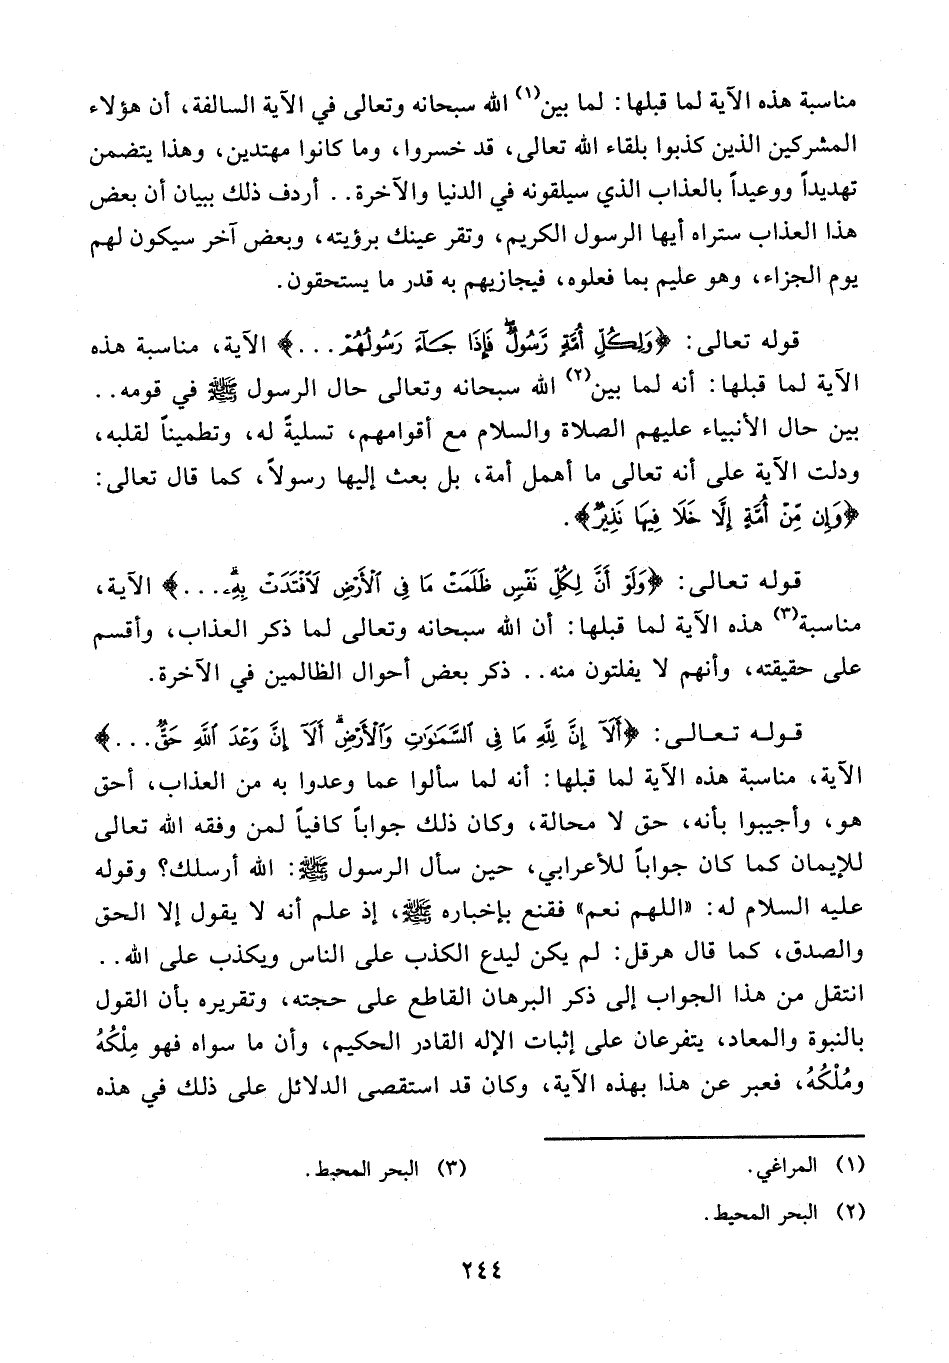 مناسبة هذه الآية لما قبلها: لما بين(١) الله سبحانه وتعالى في الآية السالفة، أن هؤلاء
المشركين الذين كذبوا بلقاء الله تعالى، قد خسروا، وما كانوا مهتدين، وهذا يتضمن
تهديداً ووعيداً بالعذاب الذي سيلقونه في الدنيا والآخرة.. أردف ذلك ببيان أن بعض
هذا العذاب ستراه أيها الرسول الكريم، وتقر عينك برؤيته، وبعض آخر سيكون لهم
يوم الجزاء، وهو عليم بما فعلوه، فيجازيهم به قدر ما يستحقون.
قوله تعالى: ﴿وَلِكُلِّ أُمَّةٍ رَّسُولٌۖ فَإِذَا جَآءَ رَسُولُهُمْ...﴾ الآية، مناسبة هذه
الآية لما قبلها: أنه لما بين(٢) الله سبحانه وتعالى حال الرسول ﷺ في قومه..
بين حال الأنبياء عليهم الصلاة والسلام مع أقوامهم، تسليةً له، وتطميناً لقلبه،
ودلت الآية على أنه تعالى ما أهمل أمة، بل بعث إليها رسولاً، كما قال تعالى:
﴿وَإِن مِّنْ أُمَّةٍ إِلَّا خَلَا فِيهَا نَذِيرٌ﴾.
قوله تعالى: ﴿وَلَوْ أَنَّ لِكُلِّ نَفْسٍ ظَلَمَتْ مَا فِى ٱلْأَرْضِ لَٱفْتَدَتْ بِهِۦۗ...﴾ الآية،
مناسبة(٣) هذه الآية لما قبلها: أن الله سبحانه وتعالى لما ذكر العذاب، وأقسم
على حقيقته، وأنهم لا يفلتون منه.. ذكر بعض أحوال الظالمين في الآخرة.
قوله تعالى: ﴿أَلَآ إِنَّ لِلَّهِ مَا فِى ٱلسَّمَٰوَٰتِ وَٱلْأَرْضِۗ أَلَآ إِنَّ وَعْدَ ٱللَّهِ حَقٌّ...﴾
الآية، مناسبة هذه الآية لما قبلها: أنه لما سألوا عما وعدوا به من العذاب، أحق
هو، وأجيبوا بأنه، حق لا محالة، وكان ذلك جواباً كافياً لمن وفقه الله تعالى
للإيمان كما كان جواباً للأعرابي، حين سأل الرسول ﷺ: الله أرسلك؟ وقوله
عليه السلام له: «اللهم نعم» فقنع بإخباره ﷺ، إذ علم أنه لا يقول إلا الحق
والصدق، كما قال هرقل: لم يكن ليدع الكذب على الناس ويكذب على الله..
انتقل من هذا الجواب إلى ذكر البرهان القاطع على حجته، وتقريره بأن القول
بالنبوة والمعاد، يتفرعان على إثبات الإله القادر الحكيم، وأن ما سواه فهو مِلْكُهُ
ومُلْكُهُ، فعبر عن هذا بهذه الآية، وكان قد استقصى الدلائل على ذلك في هذه
(١) المراغي.
(٢) البحر المحيط.
(٣) البحر المحيط.
٢٤٤